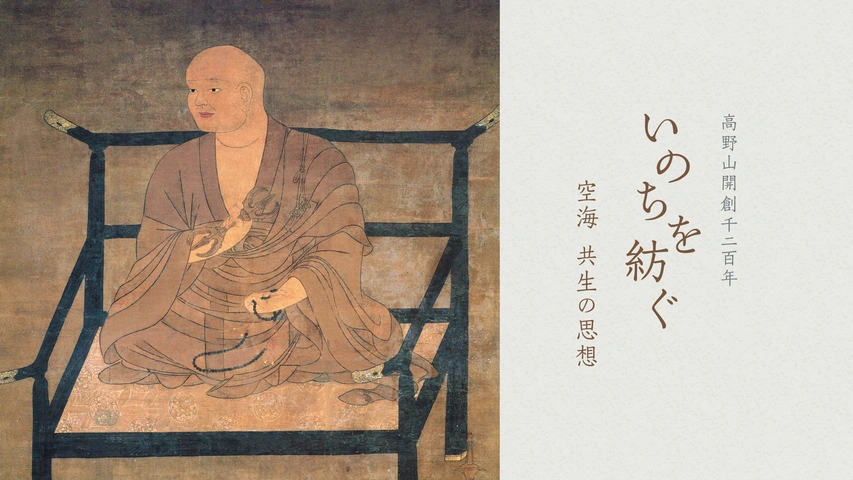 高野山開創千二百年
いのちを紡ぐ
空海 共生の思想